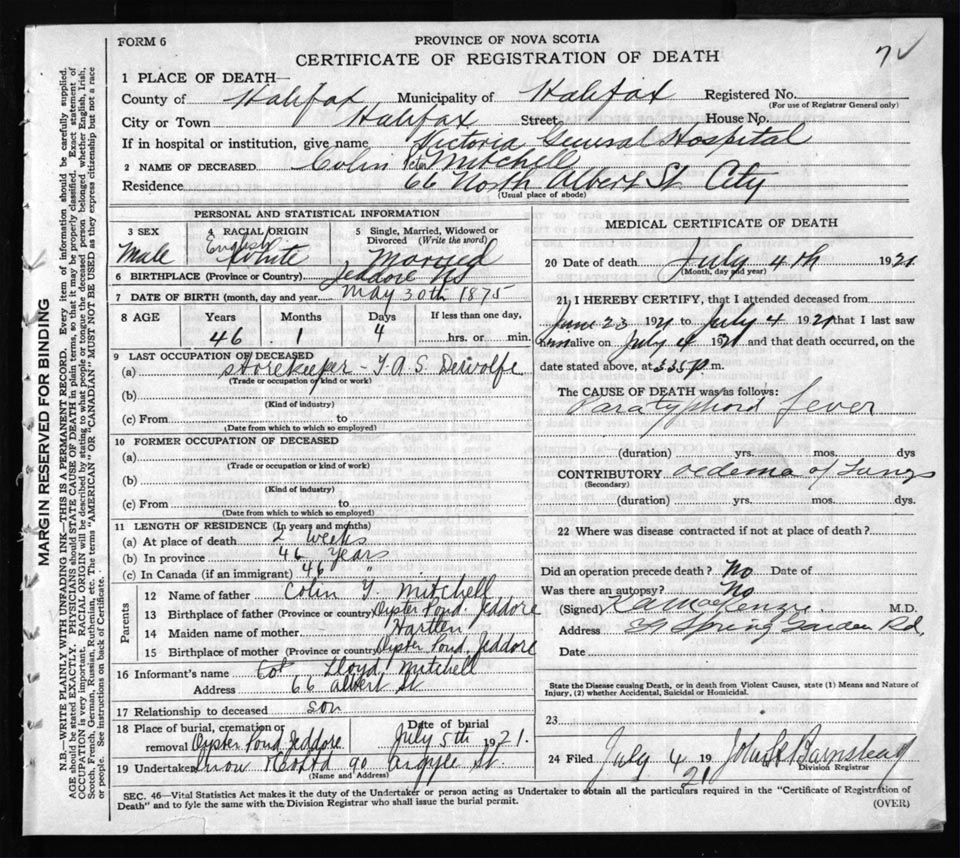 FORM 6
PROVINCE OF NOVA SCOTIA
CERTIFICATE OF REGISTRATION OF DEATH
1 PLACE OF DEATH—
County of Halifax Municipality of Halifax Registered No.
(For use of Registrar General only)
City or Town Halifax Street House No.
If in hospital or institution, give name Victoria General Hospital
2 NAME OF DECEASED Colin Peter Mitchell
Residence 66 North Albert St City
(Usual place of abode)
PERSONAL AND STATISTICAL INFORMATION
3 SEX
Male
4 RACIAL ORIGIN
English
White
5 Single, Married, Widowed or
Divorced (Write the word)
Married
6 BIRTHPLACE (Province or Country) Jeddore NS
7 DATE OF BIRTH (month, day and year) May 30th 1875
8 AGE Years Months Days If less than one day,
46 1 4 hrs. or min.
9 LAST OCCUPATION OF DECEASED
(a) Storekeeper - T.A.S. Dewolfe
(Trade or occupation or kind of work)
(b)
(Kind of industry)
(c) From to
(Date from which to which so employed)
10 FORMER OCCUPATION OF DECEASED
(a)
(Trade or occupation or kind of work)
(b)
(Kind of industry)
(c) From to
(Date from which to which so employed)
11 LENGTH OF RESIDENCE (In years and months)
(a) At place of death 2 weeks
(b) In province 46 years
(c) In Canada (if an immigrant) 46 "
Parents
12 Name of father Colin Y. Mitchell
13 Birthplace of father (Province or country) Oyster Pond. Jeddore
14 Maiden name of mother Hartlen
15 Birthplace of mother (Province or country) Oyster Pond. Jeddore
16 Informant's name Lloyd Mitchell
Address 66 Albert St
17 Relationship to deceased son
18 Place of burial, cremation or
removal Oyster Pond Jeddore
Date of burial
July 5th 1921.
19 Undertaker Snow & Co Ltd 90 Argyle St.
(Name and Address)
MEDICAL CERTIFICATE OF DEATH
20 Date of death July 4th 1921
(Month, day and year)
21 I HEREBY CERTIFY, that I attended deceased from
June 23 1921 to July 4 1921 that I last saw
him alive on July 4 1921 and that death occurred, on the
date stated above, at 3.35 p. m.
The CAUSE OF DEATH was as follows:
Paratyphoid fever
(duration) yrs. mos. dys
CONTRIBUTORY Oedema of Lungs
(Secondary)
(duration) yrs. mos. dys.
22 Where was disease contracted if not at place of death?
Did an operation precede death? No Date of
Was there an autopsy? No
(Signed) MacKenzie. M.D.
Address Spring Garden Rd.
Date
State the Disease causing Death, or in death from Violent Causes, state (1) Means and Nature of
Injury, (2) whether Accidental, Suicidal or Homicidal.
23
24 Filed July 4 19 21 John Barnstead
Division Registrar
SEC. 46—Vital Statistics Act makes it the duty of the Undertaker or person acting as Undertaker to obtain all the particulars required in the "Certificate of Registration of
Death" and to fyle the same with the Division Registrar who shall issue the burial permit.
(OVER)
MARGIN RESERVED FOR BINDING
N.B.—WRITE PLAINLY WITH UNFADING INK—THIS IS A PERMANENT RECORD. Every item of information should be carefully supplied.
AGE should be stated EXACTLY. PHYSICIANS should STATE CAUSE OF DEATH in plain terms, so that it may be properly classified. Exact statement of
OCCUPATION is very important. RACIAL ORIGIN will be described by stating to what people or tongue the deceased person belonged whether English, Irish,
Scotch, French, German, Russian, Ruthenian, etc. The terms "AMERICAN" OR "CANADIAN" MUST NOT BE USED as they express citizenship but not a race
or people. See instructions on back of Certificate.